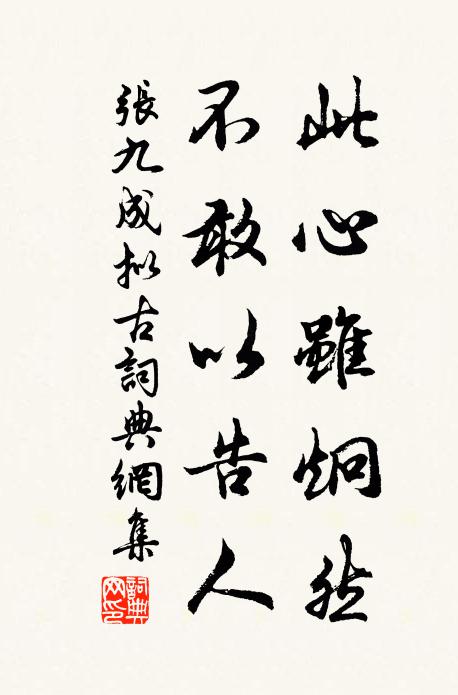 此心雖炯然
不敢以告人
張九成拟古詞典網集
詞典網印